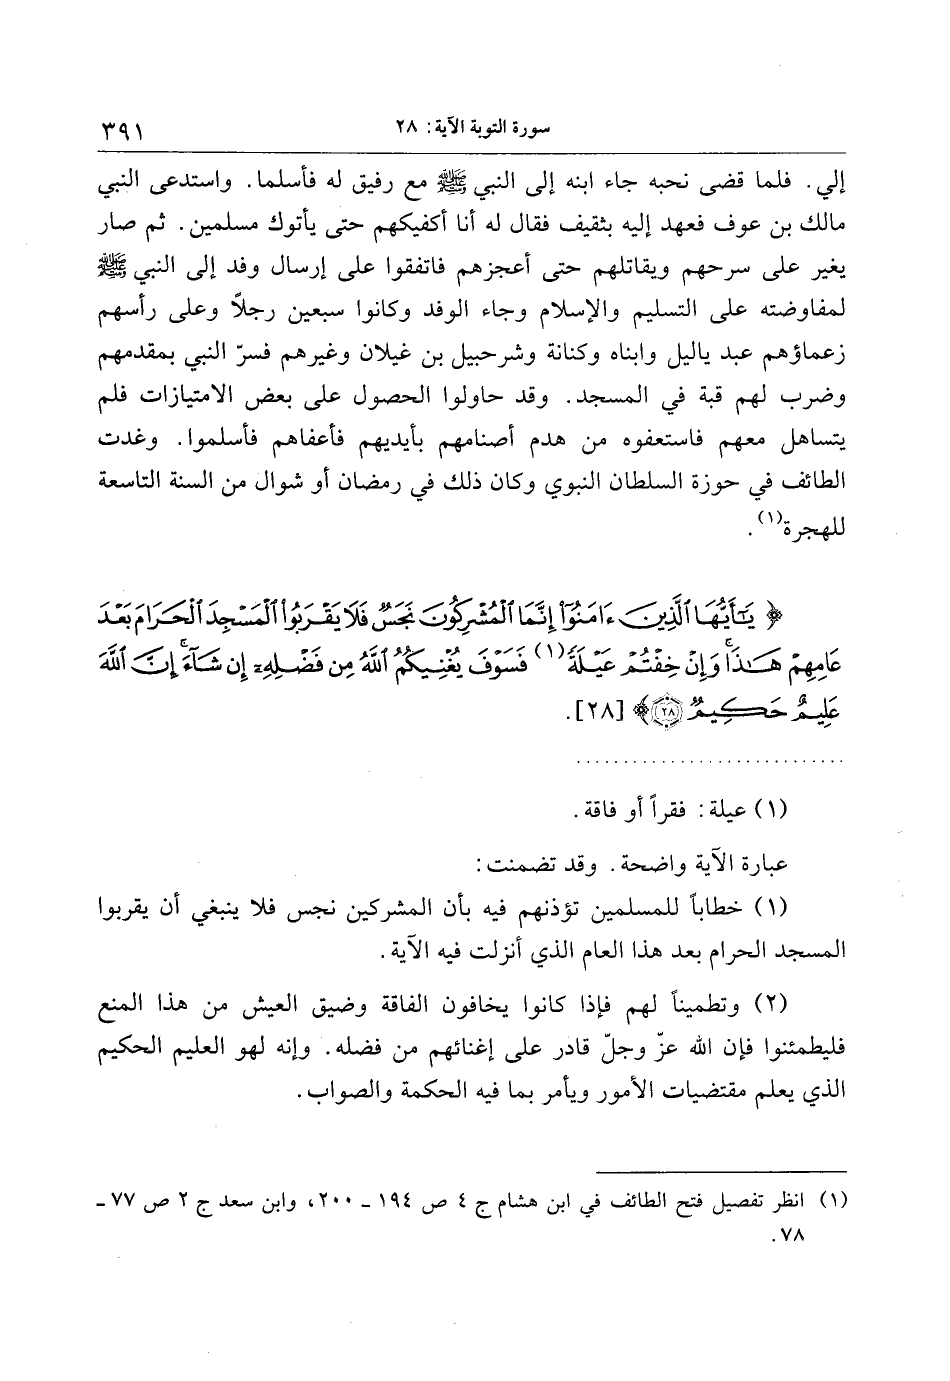 سورة التوبة الآية: ٢٨
٣٩١
إلي. فلما قضى نحبه جاء ابنه إلى النبي ﷺ مع رفيق له فأسلما. واستدعى النبي
مالك بن عوف فعهد إليه بثقيف فقال له أنا أكفيكهم حتى يأتوك مسلمين. ثم صار
يغير على سرحهم ويقاتلهم حتى أعجزهم فاتفقوا على إرسال وفد إلى النبي ﷺ
لمفاوضته على التسليم والإسلام وجاء الوفد وكانوا سبعين رجلاً وعلى رأسهم
زعماؤهم عبد ياليل وابناه وكنانة وشرحبيل بن غيلان وغيرهم فسرّ النبي بمقدمهم
وضرب لهم قبة في المسجد. وقد حاولوا الحصول على بعض الامتيازات فلم
يتساهل معهم فاستعفوه من هدم أصنامهم بأيديهم فأعفاهم فأسلموا. وغدت
الطائف في حوزة السلطان النبوي وكان ذلك في رمضان أو شوال من السنة التاسعة
للهجرة(١).
﴿ يَٰٓأَيُّهَا ٱلَّذِينَ ءَامَنُوٓاْ إِنَّمَا ٱلْمُشْرِكُونَ نَجَسٌ فَلَا يَقْرَبُواْ ٱلْمَسْجِدَ ٱلْحَرَامَ بَعْدَ
عَامِهِمْ هَٰذَا ۚ وَإِنْ خِفْتُمْ عَيْلَةً(١) فَسَوْفَ يُغْنِيكُمُ ٱللَّهُ مِن فَضْلِهِۦٓ إِن شَآءَ ۚ إِنَّ ٱللَّهَ
عَلِيمٌ حَكِيمٌ ٢٨ ﴾ [٢٨].
............................
(١) عيلة: فقراً أو فاقة.
عبارة الآية واضحة. وقد تضمنت:
(١) خطاباً للمسلمين تؤذنهم فيه بأن المشركين نجس فلا ينبغي أن يقربوا
المسجد الحرام بعد هذا العام الذي أنزلت فيه الآية.
(٢) وتطميناً لهم فإذا كانوا يخافون الفاقة وضيق العيش من هذا المنع
فليطمئنوا فإن الله عزّ وجلّ قادر على إغنائهم من فضله. وإنه لهو العليم الحكيم
الذي يعلم مقتضيات الأمور ويأمر بما فيه الحكمة والصواب.
(١) انظر تفصيل فتح الطائف في ابن هشام ج ٤ ص ١٩٤ ـ ٢٠٠، وابن سعد ج ٢ ص ٧٧ ـ
٧٨.